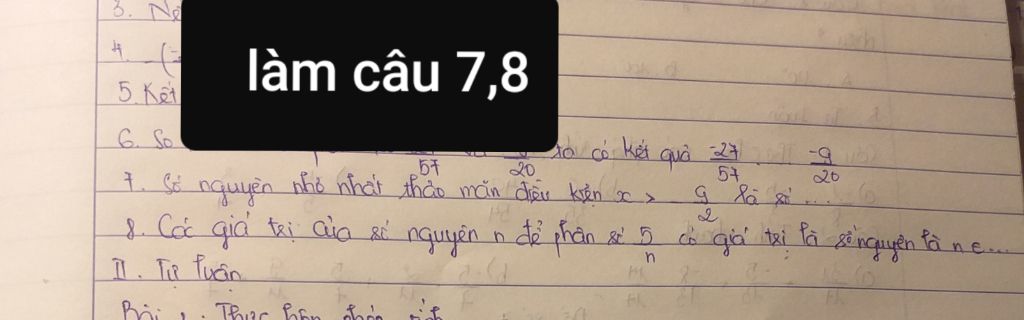 3. Nế
làm câu 7,8
4. (-
5. Kết
6. So
57 20 ta có kết quả -27/57 ... -9/20
7. Số nguyên nhỏ nhất thảo mãn điều kiện x > 9/2 là số ...
8. Các giá trị của số nguyên n để phân số 5/n có giá trị là số nguyên là n ∈ ...
II. Tự luận
Bài 1. Thực hiện phép tính